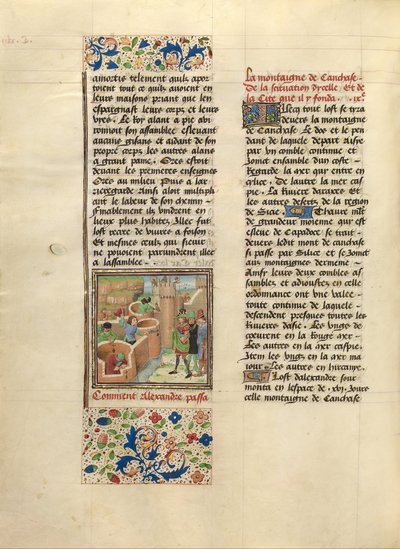 amortis telement quilz apor
toient tout ce quilz auoient en
leurs maisons priant que len
espargnast leurs corps et leurs
vyes. Le Roy alant a pie ad
ioinoit son assamblee esleuant
aucuns gisans et aidant de son
propre corps les autres alans
a grant paine.
Ores au milieu
arrieregarde Ainsi aloit multipli
ant le labeur de son chemin
finablement ilz vindrent en
lieux plus habitez Illec fut
lost recree de viures a foison
Et mesmes ceulz qui sieuir
ne pouoient paruindrent illec
a lassamblee
Comment Alexandre passa
la montaigne de Caucase
De la scituation dycelle Et de
la Cite que il y fonda. ix.
Illecq tout lost se tyra
deuers la montaigne
de Caucase Le dos et le pen
dant de laquele depart Asie
par vn comble continue et
Joinct ensamble dun coste
Regarde la mer qui entre en
De lautre la mer cas
pie. La Riuiere daraxes et
les autres desertz de la region
de Thaure mot
de grandeur moienne qui est
de Capadoce se trait
deuers ledit mont de caucase
si passe par Silice et se Joinct
aux montaignes dermenie
Ainsy leurs deux combles as
samblez et adioustez en celle
ordonnance ont vne valee
toute continue de laquele
descendent presques toutes les
Riuieres dasie. Les vngz de
cueurent en la Rouge mer
Les autres en la mer caspie.
Item les vngz en la mer ma
iour Les autres en hircanye.
Lost dalexandre sour
monta en lespace de .xvj. Jours
celle montaigne de Caucase